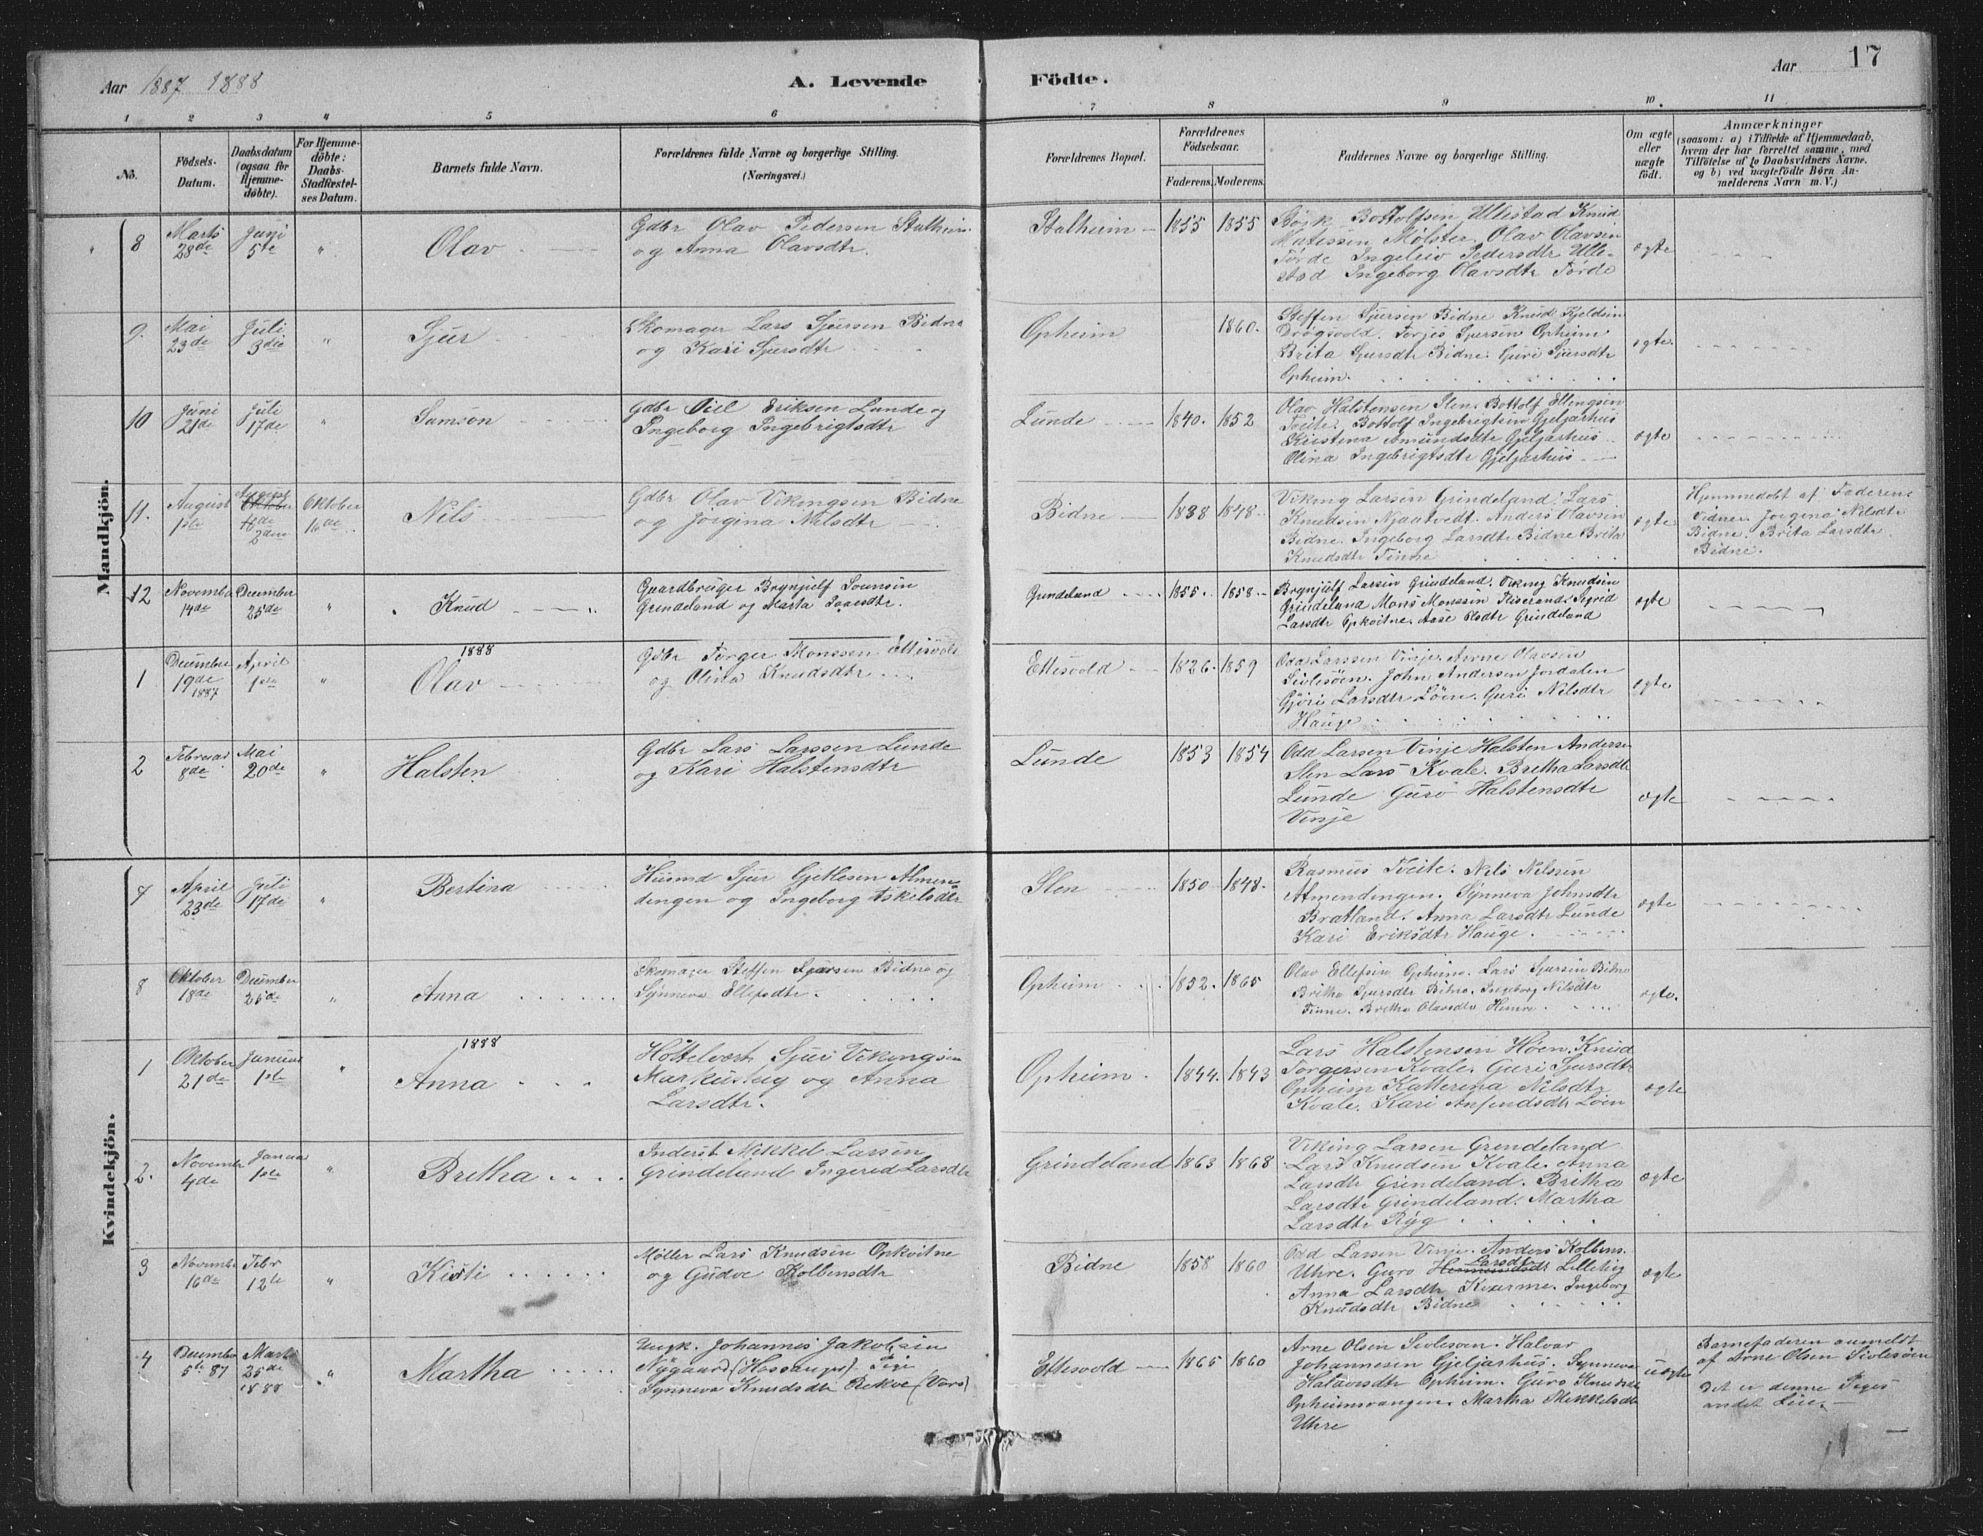 Aar 1887 1888 A. Levende Födte. Aar 17
1 2 3 4 5 6 7 8 9 10. 11
No. Födsels-Datum. Daabsdatum (ogsaa for Hjemme-døbte). For Hjemme-döbte: Daabs-Stadfæstel-ses Datum. Barnets fulde Navn. Forældrenes fulde Navne og borgerlige Stilling. (Næringsvei.) Forældrenes Bopæl. Forældrenes Födselsaar. Faderens. Moderens. Faddernes Navne og borgerlige Stilling. Om ægte eller uægte födt. Anmærkninger (saasom: a) i Tilfælde af Hjemmedaab, hvem der har forrettet samme, med Tilföielse af to Daabsvidners Navne, og b) ved uægtefödte Börn An-melderens Navn m. V.)
Mandkjön.
8 Marts 28de Juni 5te " Olav Gdbr Olav Pedersen Stalheim
og Anna Olavsdtr Stalheim 1855 1855 Bottolfsen Ullestad Knud
Matissen Mølster. Olav Olavsen
Tørde Ingeleiv Pedersdtr Ulle-
stad Ingeborg Olavsdtr Tørde ægte
9. Mai 23de Juli 3die " Sjur Skomager Lars Sjursen Bidne
og Kari Sjursdtr Opheim 1860. Steffen Sjursen Bidne Knud Kjeldsen
Drøgsvold. Torjus Sjursen Opheim
Brita Sjursdtr Bidne. Guri Sjursdtr
Opheim. ægte.
10 Juni 21de Juli 17de " Samson Gdbr Eriksen Lunde og
Ingeborg Ingebrigtsdtr Lunde 1840. 1852 Olav Halstensen Slen. Bottolf Ellingsen
Tveite. Bottolf Ingebrigtsen Gjeljarhus
Kirstena Amundsdtr Gjeljarhus
Olina Ingebrigtsdtr Gjeljarhus ægte
11. August 1ste Oktober 2den Oktober 16de Nils Gdbr Olav Vikingsen Bidne
og Jørgina Nilsdtr Bidne 1838 1848 Viking Larsen Grindeland. Lars
Knudsen Njaatvedt. Anders Olavsen
Bidne. Ingeborg Larsdtr Bidne Brita
Knudsdtr Tinne ægte Hjemmedøbt af Faderen
Vidner. Jørgina Nilsdtr
Bidne. Brita Larsdtr
Bidne.
12 November 14de December 25de " Knud Gaardbruger Brynjulf
Grindeland og Marta Grindeland 1855. 1858. Brynjulf Larsen Grindeland. Viking Knudsen
Grindeland Mons Monssen Sigrid
Larsdtr Opkvitne. Aase Grindeland ægte
1888
1 December 19de 1887 April 1ste " Olav Gdbr Torger Monssen Ettesvold
og Olina Knudsdtr Ettesvold 1826. 1859 Odd Larsen Vinje Arne Olavsen
Sivlesøen. John Andersen Jordalen
Gjøri Larsdtr Løen. Guri Nilsdtr
Hauge ægte
2 Februar 8de Mai 20de " Halsten Gdbr Lars Larssen Lunde
og Kari Halstensdtr Lunde 1853 1854 Odd Larsen Vinje Halsten Anderse
Slen Lars Kvale. Bretha Larsdtr
Lunde Guro Halstensdtr
Vinje ægte
Kvindekjön.
7 April 23de Juli 17de " Bertina Husmd Sjur Gjetlesen Almen-
dingen og Ingeborg Askilsdtr Slen 1850 1848. Rasmus Tveite. Nils Nilsen
Almendingen. Synneva Johnsdtr
Bratland. Anna Larsdtr Lunde
Kari Eriksdtr Hauge. ægte
8 Oktober 18de December 26de " Anna Skomager Steffen Sjursen Bidne og
Synneva Ellefsdtr. Opheim 1852. 1865 Olav Ellefsen Opheim. Lars Sjursen Bidne
Britha Sjursdtr Bidne. Ingeborg Nilsdtr
Tinne. Bretha Olavsdtr ægte.
1888
1 Oktober 21de Januar 1ste " Anna Høttelvært Sjur Vikingsen
Markusteg og Anna
Larsdtr. Opheim. 1844. 1843 Lars Halstensen Høen. Knud
Torgersen Kvale. Guri Sjursdtr
Opheim Katterina Nilsdtr
Kvale. Kari Løen ægte
2. November 4de Januar 1ste " Bretha Inderst Mikkel Larsen
Grindeland Ingerid Larsdtr Grindeland 1863 1868 Viking Larsen Grendeland
Lars Knudsen Kvale. Anna
Larsdtr Grindeland. Britha
Larsdtr Grindeland. Martha
Larsdtr Ryg ægte
3 November 16de Febr 12te " Kisti Møller Lars Knudsen Opkvitne
og Gudve Kolbensdtr Bidne 1858 1860 Odd Larsen Vinje. Anders Kolbens.
Uhre. Guro Larsdtr Lilleteig
Anna Larsdtr Kvarme. Ingeborg
Knudsdtr Bidne ægte
4 December 5te 87 Marts 25de 1888 " Martha Ungk. Johannes Jakobsen
Nygaard (Hossanger). Pige
Synneva Knudsdtr Rekve (Vors) Ettesvold 1865 1860 Arne Olsen Sivlesøen. Halvar
Johannesen Gjeljarhus. Synneva
Halvorsdtr Opheim. Guro Knudsdtr
Opheimsvangen. Martha Mikkelsdtr
Uhre uægte Barnefaderen anmeldt
af Arne Olsen Sivlesøen
Det er denne Piges
andet Leie.